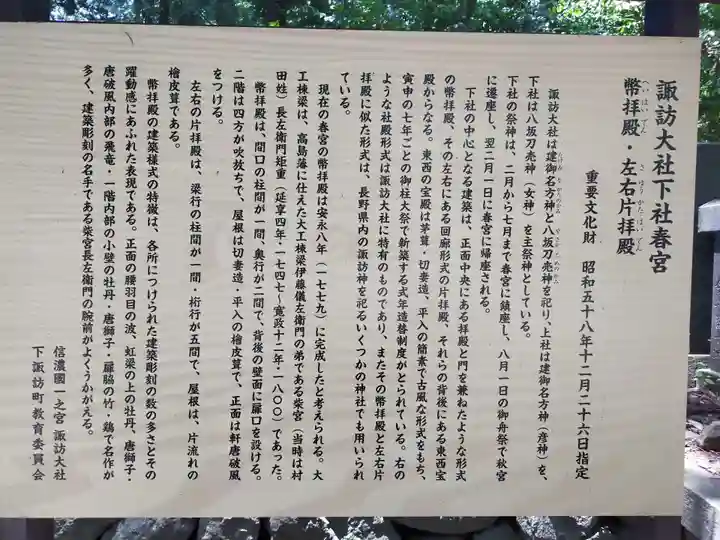 諏訪大社下社春宮
へいはいでん　さゆうかたはいでん
幣拝殿・左右片拝殿
重要文化財　昭和五十八年十二月二十六日指定
諏訪大社は建御名方神と八坂刀売神を祀り、上社は建御名方神（彦神）を、
下社は八坂刀売神（女神）を主祭神としている。
下社の祭神は、二月から七月まで春宮に鎮座し、八月一日の御舟祭で秋宮
に遷座し、翌二月一日に春宮に帰座される。
下社の中心となる建築は、正面中央にある拝殿と門を兼ねたような形式
の幣拝殿、その左右にある回廊形式の片拝殿、それらの背後にある東西宝
殿からなる。東西の宝殿は茅葺・切妻造、平入の簡素で古風な形式をもち、
寅申の七年ごとの御柱大祭で新築する式年造替制度がとられている。右の
ような社殿形式は諏訪大社に特有のものであり、またその幣拝殿と左右片
拝殿に似た形式は、長野県内の諏訪神を祀るいくつかの神社でも用いられ
ている。
現在の春宮の幣拝殿は安永八年（一七七九）に完成したと考えられる。大
工棟梁は、高島藩に仕えた大工棟梁伊藤儀左衛門の弟である柴宮（当時は村
田姓）長左衛門矩重（延享四年・一七四七〜寛政十二年・一八〇〇）であった。
幣拝殿は、間口の柱間が一間、奥行が二間で、背後の壁面に扉口を設ける。
二階は四方が吹放ちで、屋根は切妻造・平入の檜皮葺で、正面は軒唐破風
をつける。
左右の片拝殿は、梁行の柱間が一間・桁行が五間で、屋根は、片流れの
檜皮葺である。
幣拝殿の建築様式の特徴は、各所につけられた建築彫刻の数の多さとその
躍動感にあふれた表現である。正面の腰羽目の波、虹梁の上の牡丹、唐獅子・
唐破風内部の飛竜・一階内部の小壁の牡丹・唐獅子・扉脇の竹・鶏で名作が
多く、建築彫刻の名手である柴宮長左衛門の腕前がよくうかがえる。
信濃國一之宮　諏訪大社
下諏訪町教育委員会